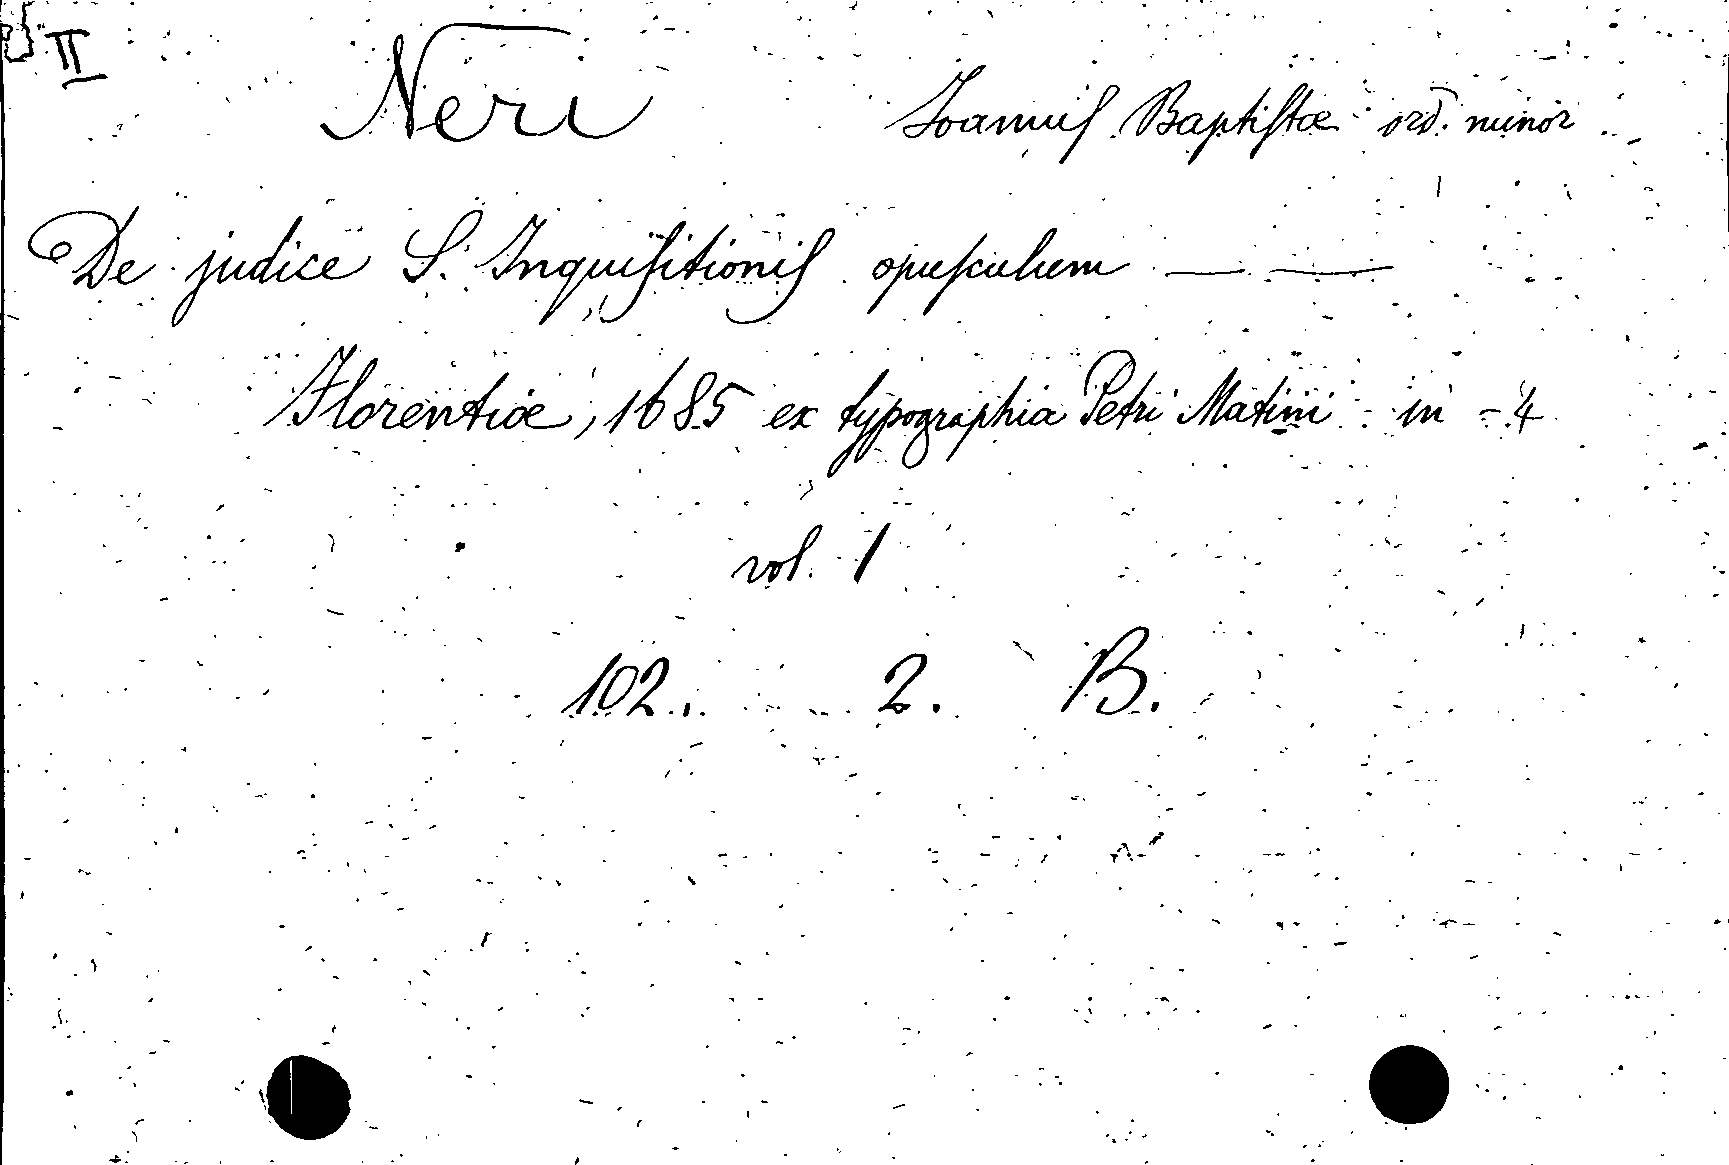 II
Neri Joannis Baptistæ ord. minor
De judice S. Inquisitionis opusculum — —
Florentiæ, 1685 ex typographia Petri Matini in - 4
vol. 1
102. 2. B.